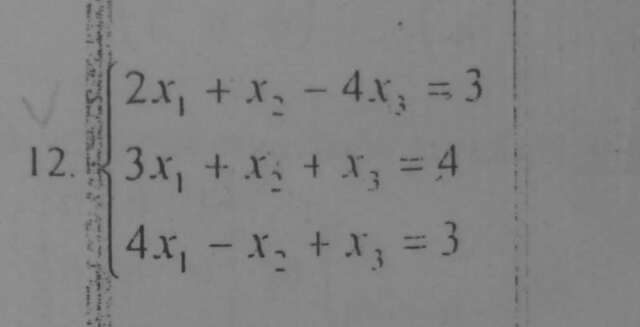 2x₁ + x₂ − 4x₃ = 3
12. 3x₁ + x₂ + x₃ = 4
4x₁ − x₂ + x₃ = 3